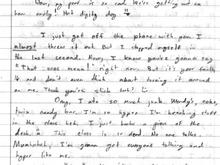 Dawn, my poor is so sad. We're getting out on
have candy! Hot diggity dog.
I just got off the phone with you I
almost threw it out. But I stopped myself in
the last second. Now, I know you're gonna say
that was mean! right now. But it's your fault
&, and don't even think about turning it around
on me. Think you're slick huh!
Omg, I ate so much junk. Wendy's, coke,
twix, candy bar. I'm so hyper. I'm breaking stuff
in the class lol. I just broke a piece of the
desk. This class is so dead. No one talks.
Mwahahah, I'm gonna get everyone talking and
hyper like me.